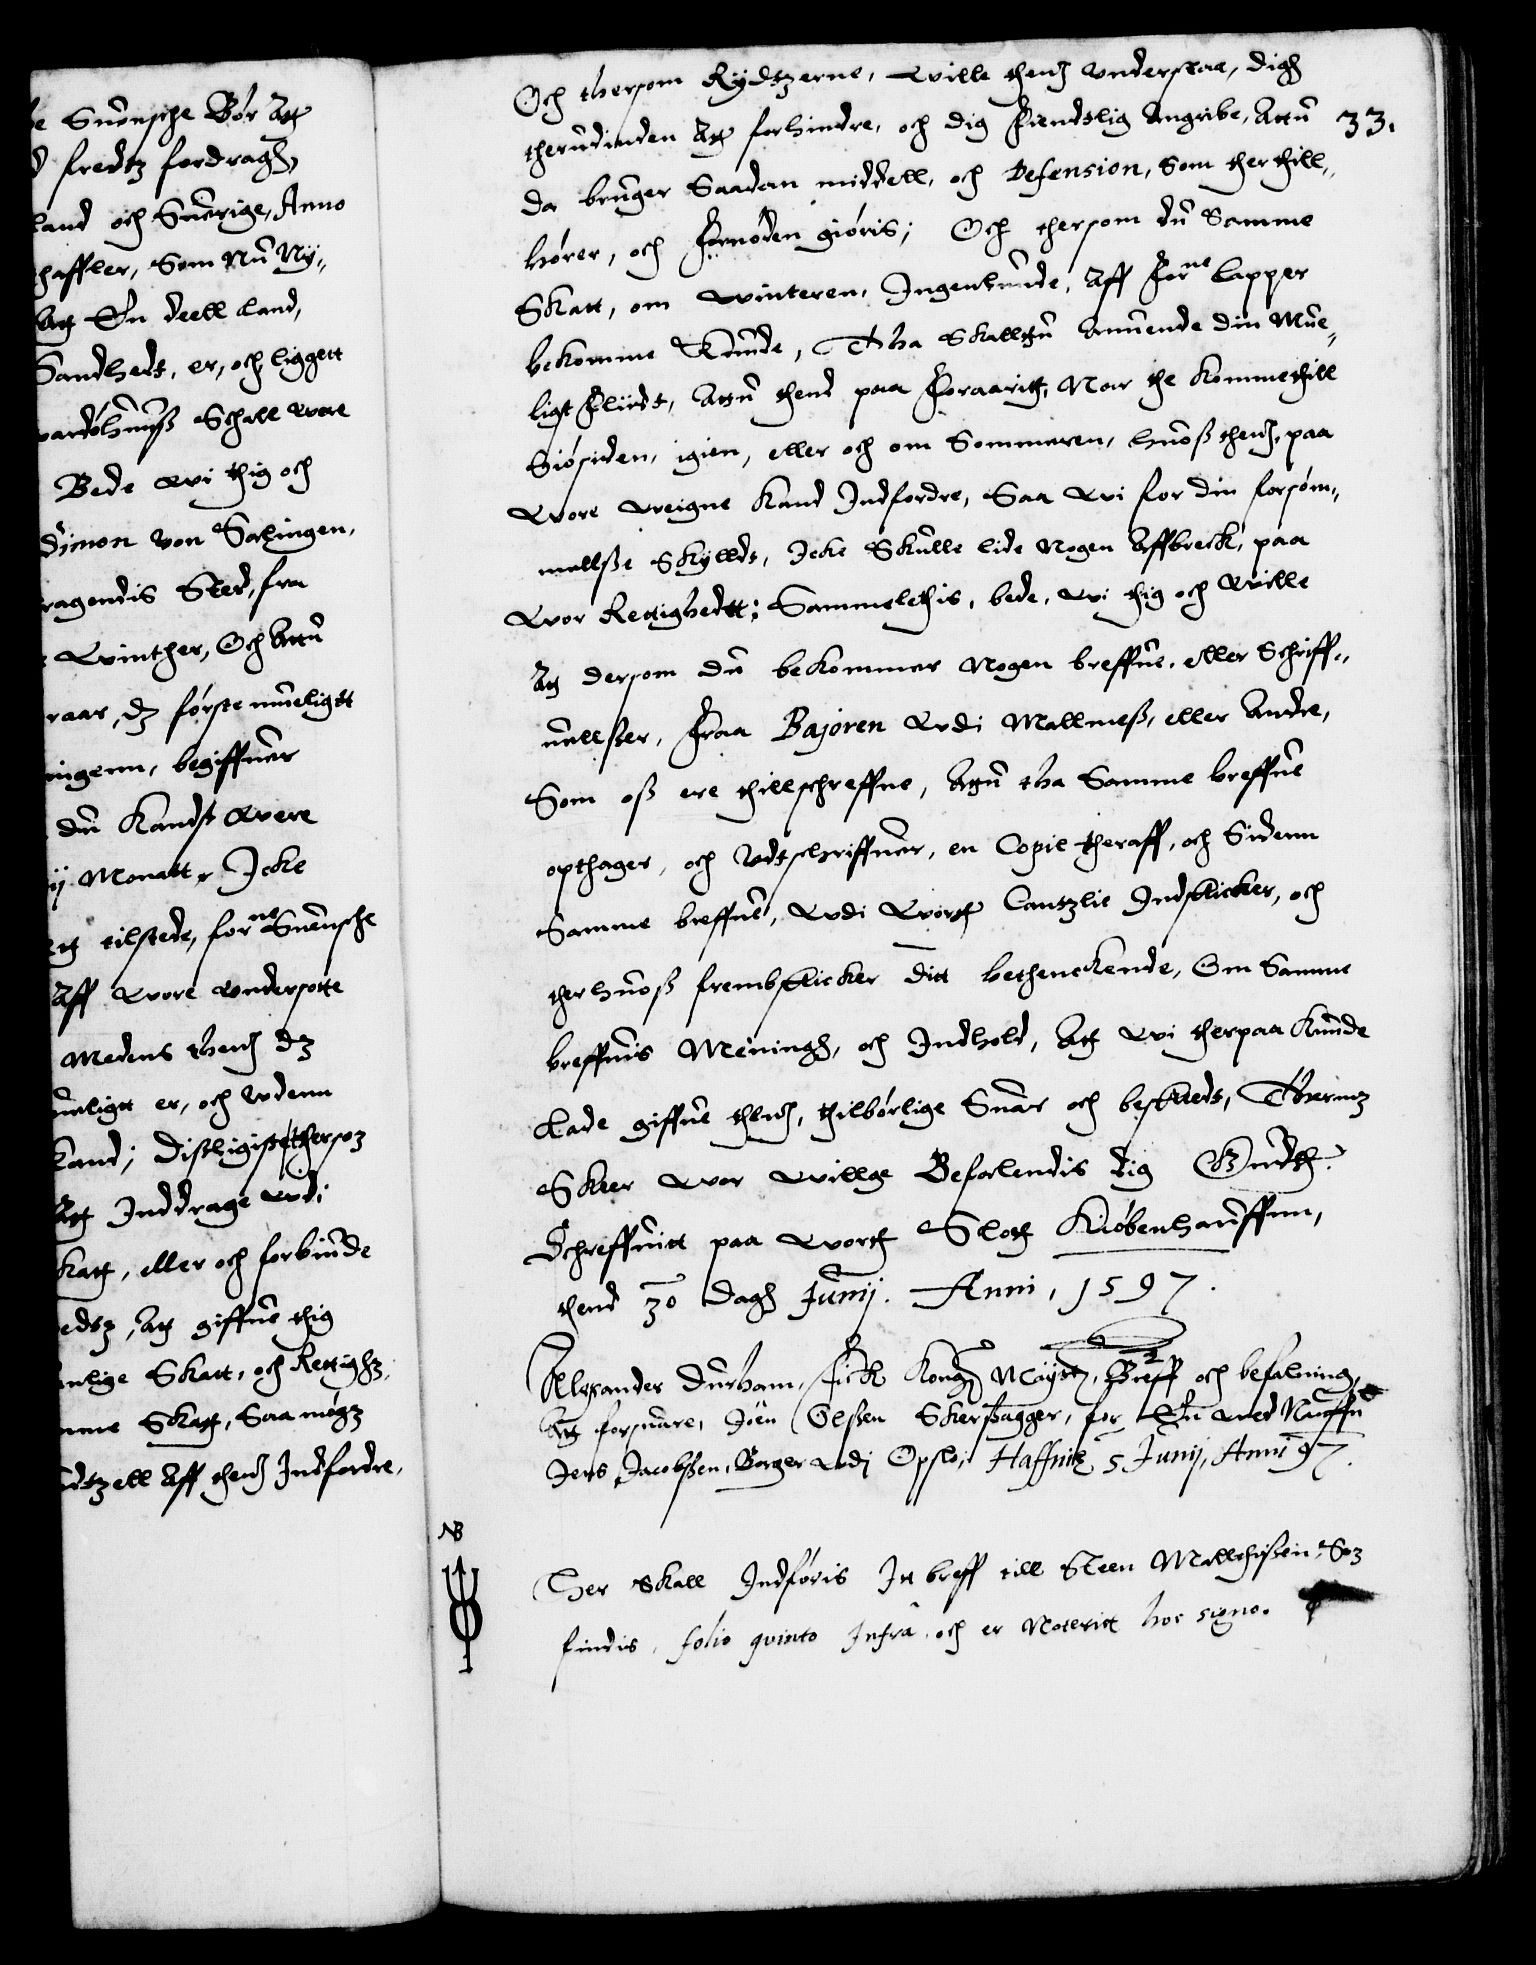 e Suensche Bør Att
d fredtz fordragh,
land och Suerige, Anno
haffler, Som Nu Ny,,
Att En deell Land,
Sandhedt, er, och liggett
vardøhuuß Schall were
Bede wi thig och
Simon von Salingen,
ragendis Sted, fra
Winther, Och Attu
raar, dz første mueligtt
ingenn, begiffuer
du Kandst were
ij Monatt, Icke
Att tilstede, forne Suensche
Aff wore undersotte
Medens thend dz
mueligt er, och udenn
Kand; Disligiste thersoz
Att Inddrage udi
katt, eller och forbiude
edtz, Att giffue thig
nlige Skatt, och Rettighz,
mme Skatt, Saa mogz
dtzell Aff thend Indfordre,
33.
Och thersom Rydtzerne, wille thend understaa, digh
therudinden Att forhindre, och dig fiendtlig Angribe, Attu
da bruger Saadan middell, och Defension, Som ther thill,,
hører, och fornøden giøris; Och thersom du Samme
Skatt, om winteren, Ingenlunde, Aff forne Lapper
bekomme Kunde, Tha Skalltu Anuende din Mue,,
ligt fliidt, Attu thend paa foraaritt, Naar the komme thill
Siøsiden, igien, eller och om Sommeren, huoß thend, paa
wore weigne Kand Indfordre, Saa wi for din forsøm,,
mellße Skylldt, Icke Skulle lide Nogen Affbreck, paa
wor Rettighedtt; Sammeledis, bede, wi thig och wille
At dersom du bekommer Nogen breffue, eller Schriff,,
uellßer, fraa Bajoren udi Mallmeß, eller Andre,
Som oß ere thillschreffne, Attu tha Samme breffue
opthager, och Udtschriffuer, en Copie theraff, och Sidenn
Samme breffue, udi wortt Cantzlie Indskicker, och
ther huoß frembskicker ditt bethenckende, Om Samme
breffuis Meningh, och Indhold, Att wi therpaa Kunde
Lade giffue thend, thilbørlige Suar och beskeedt, Thermz
Skeer wor willge Befalendis dig Gudtt.
Schreffuitt paa wortt Slott Kiøbenhaffuenn,
thend 30 Dagh Junij. Anni, 1597.
Alexander Durham, fick Kong: Mayst: Breff och befalning,
Att forsuare, Joen Olßen Skersagger, for En wed Naffn
Jens Jacobßen, Borger udj Opslo, Haffnie 5 Junij, Anni 97.
NB
Her Skall Indføris It breff till Steen Mallthißen, Soz
findis, folio quinto Infra, och er Noteritt hoc signo.